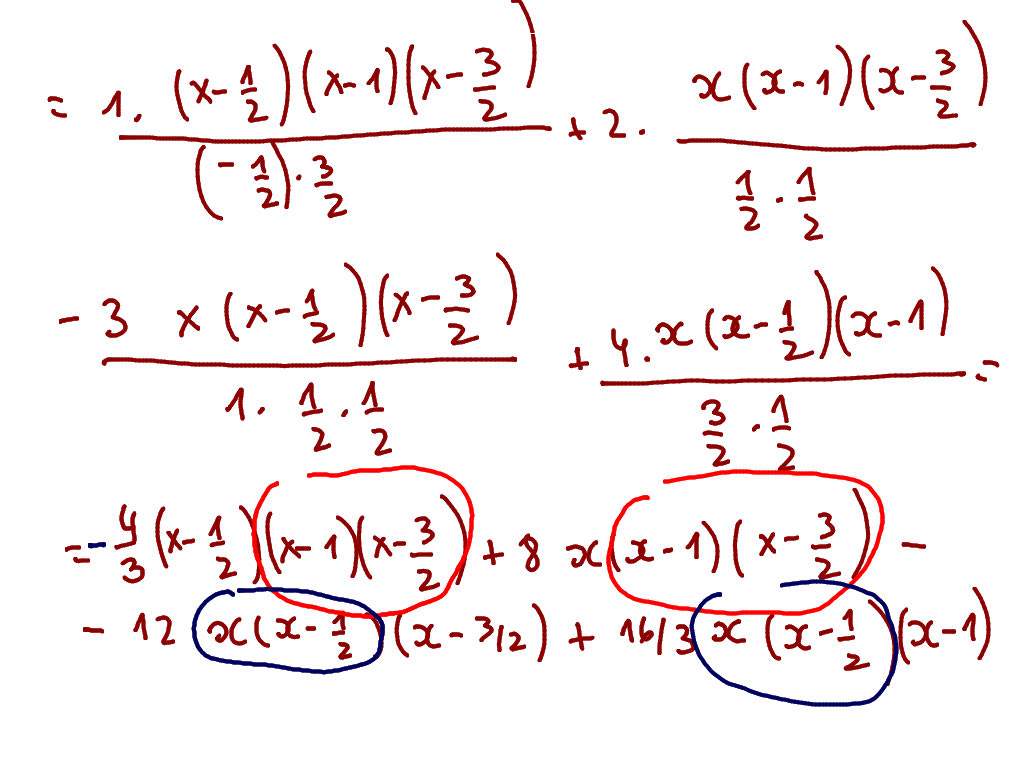 = 1. (x-1/2)(x-1)(x-3/2) / (-1/2)·3/2 + 2· x(x-1)(x-3/2) / 1/2·1/2
- 3 x(x-1/2)(x-3/2) / 1·1/2·1/2 + 4·x(x-1/2)(x-1) / 3/2·1/2 =
=-4/3(x-1/2)(x-1)(x-3/2) + 8 x(x-1)(x-3/2) -
- 12 x(x-1/2)(x-3/2) + 16/3 x(x-1/2)(x-1)